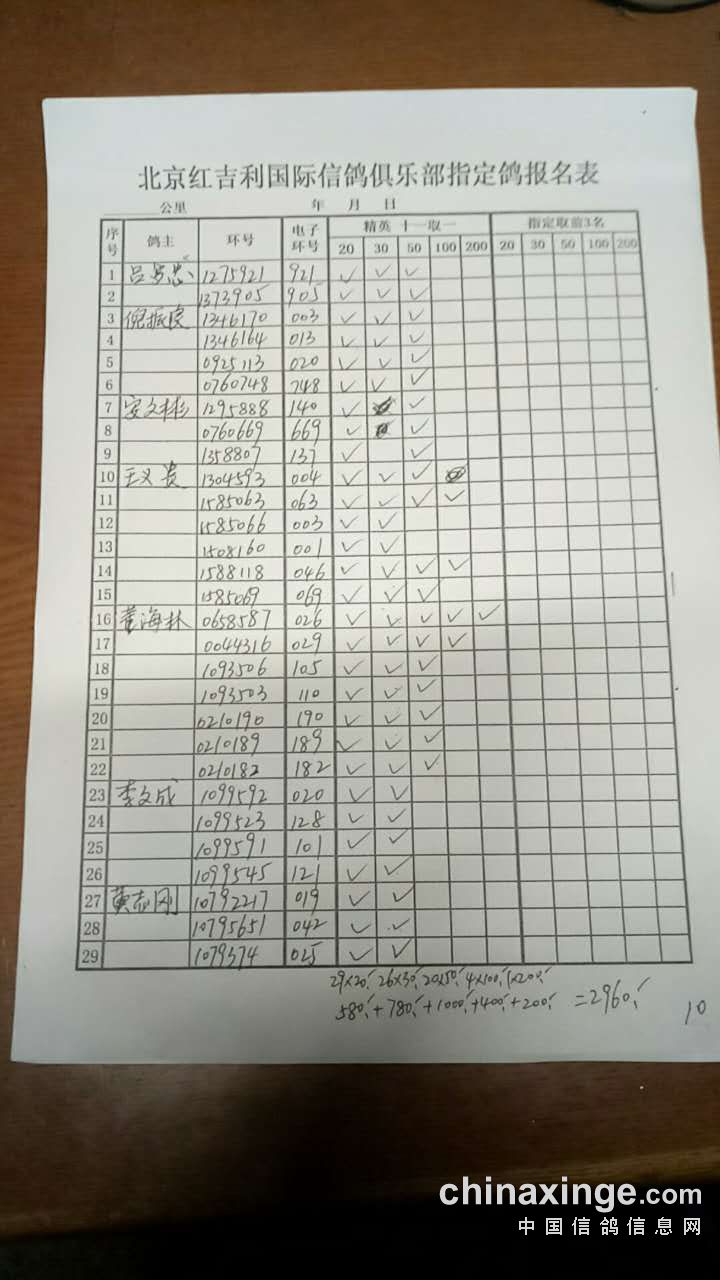 北京红吉利国际信鸽俱乐部指定鸽报名表
公里 年 月 日
序号 鸽主 环号 电子环号 精英 十一取一 指定取前3名
20 30 50 100 200 20 30 50 100 200
1 1275921 921 ✓ ✓ ✓
2 1373905 905 ✓ ✓ ✓
3 倪振良 1346170 003 ✓ ✓ ✓
4 1346164 013 ✓ ✓ ✓
5 0925113 020 ✓ ✓ ✓
6 0760748 748 ✓ ✓ ✓
7 安文彬 1295888 140 ✓ ✓
8 0760669 669 ✓ ✓
9 1358807 137 ✓ ✓
10 王义贵 1304593 004 ✓ ✓ ✓
11 1585063 063 ✓ ✓ ✓ ✓
12 1585066 003 ✓ ✓
13 1508160 001 ✓ ✓
14 1588118 046 ✓ ✓ ✓ ✓
15 1585069 069 ✓ ✓ ✓
16 董海林 0658587 026 ✓ ✓ ✓ ✓ ✓
17 0044316 029 ✓ ✓ ✓ ✓
18 1093506 105 ✓ ✓ ✓
19 1093503 110 ✓ ✓ ✓
20 0210190 190 ✓ ✓ ✓
21 0210189 189 ✓ ✓ ✓
22 0210182 182 ✓ ✓ ✓
23 李文成 1099592 020 ✓ ✓
24 1099523 128 ✓ ✓
25 1099591 101 ✓ ✓
26 1099545 121 ✓ ✓
27 黄志刚 10792217 019 ✓ ✓
28 10795651 042 ✓ ✓
29 1079374 025 ✓ ✓
29×20 26×30 20×50 4×100 1×200
580+780+1000+400+200=2960
10
chinaxinge.com
中国信鸽信息网